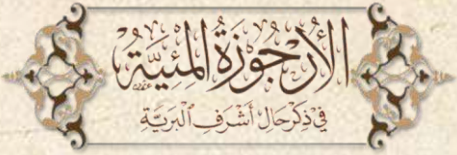 الأُرْجُوزَةُ المِئِيَّةُ
فِي ذِكْرِ حَالِ أَشْرَفِ الْبَرِيَّةِ